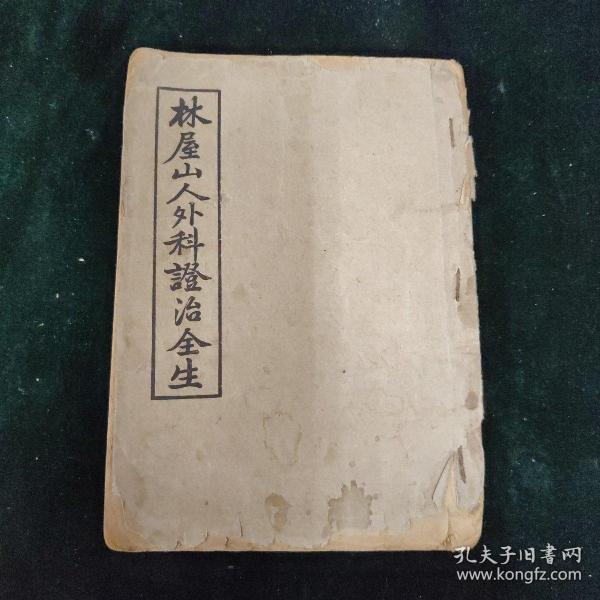 林屋山人外科證治全生
孔夫子旧書网
www.kongfz.com